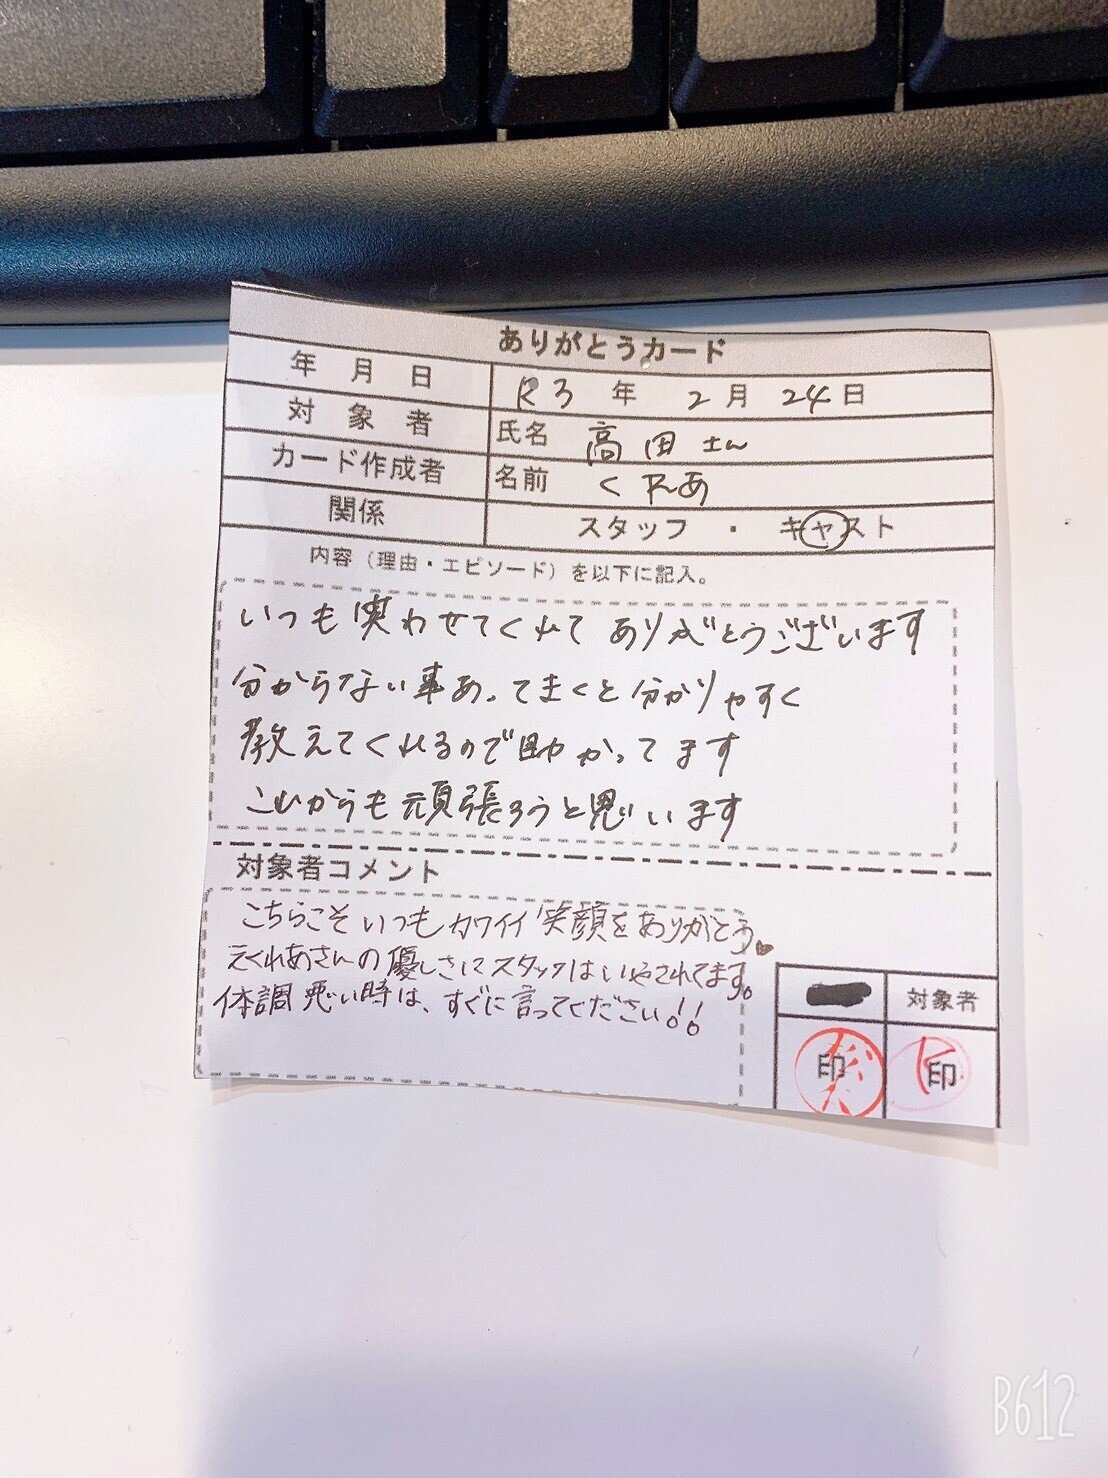 ありがとうカード
年 月 日 R3 年 2 月 24 日
対 象 者 氏名 高田さん
カード作成者 名前 くれあ
関係 スタッフ ・ キャスト
内容（理由・エピソード）を以下に記入。
いつも笑わせてくれて ありがとうございます
分からない事あってもすぐと分かりやすく
教えてくれるので助かってます
これからも頑張ろうと思います
対象者コメント
こちらこそいつもカワイイ笑顔をありがとう♥
くれあさんの優しさにスタッフはいやされてます。
体調悪い時は、すぐに言ってください!!
対象者
印 印
B612